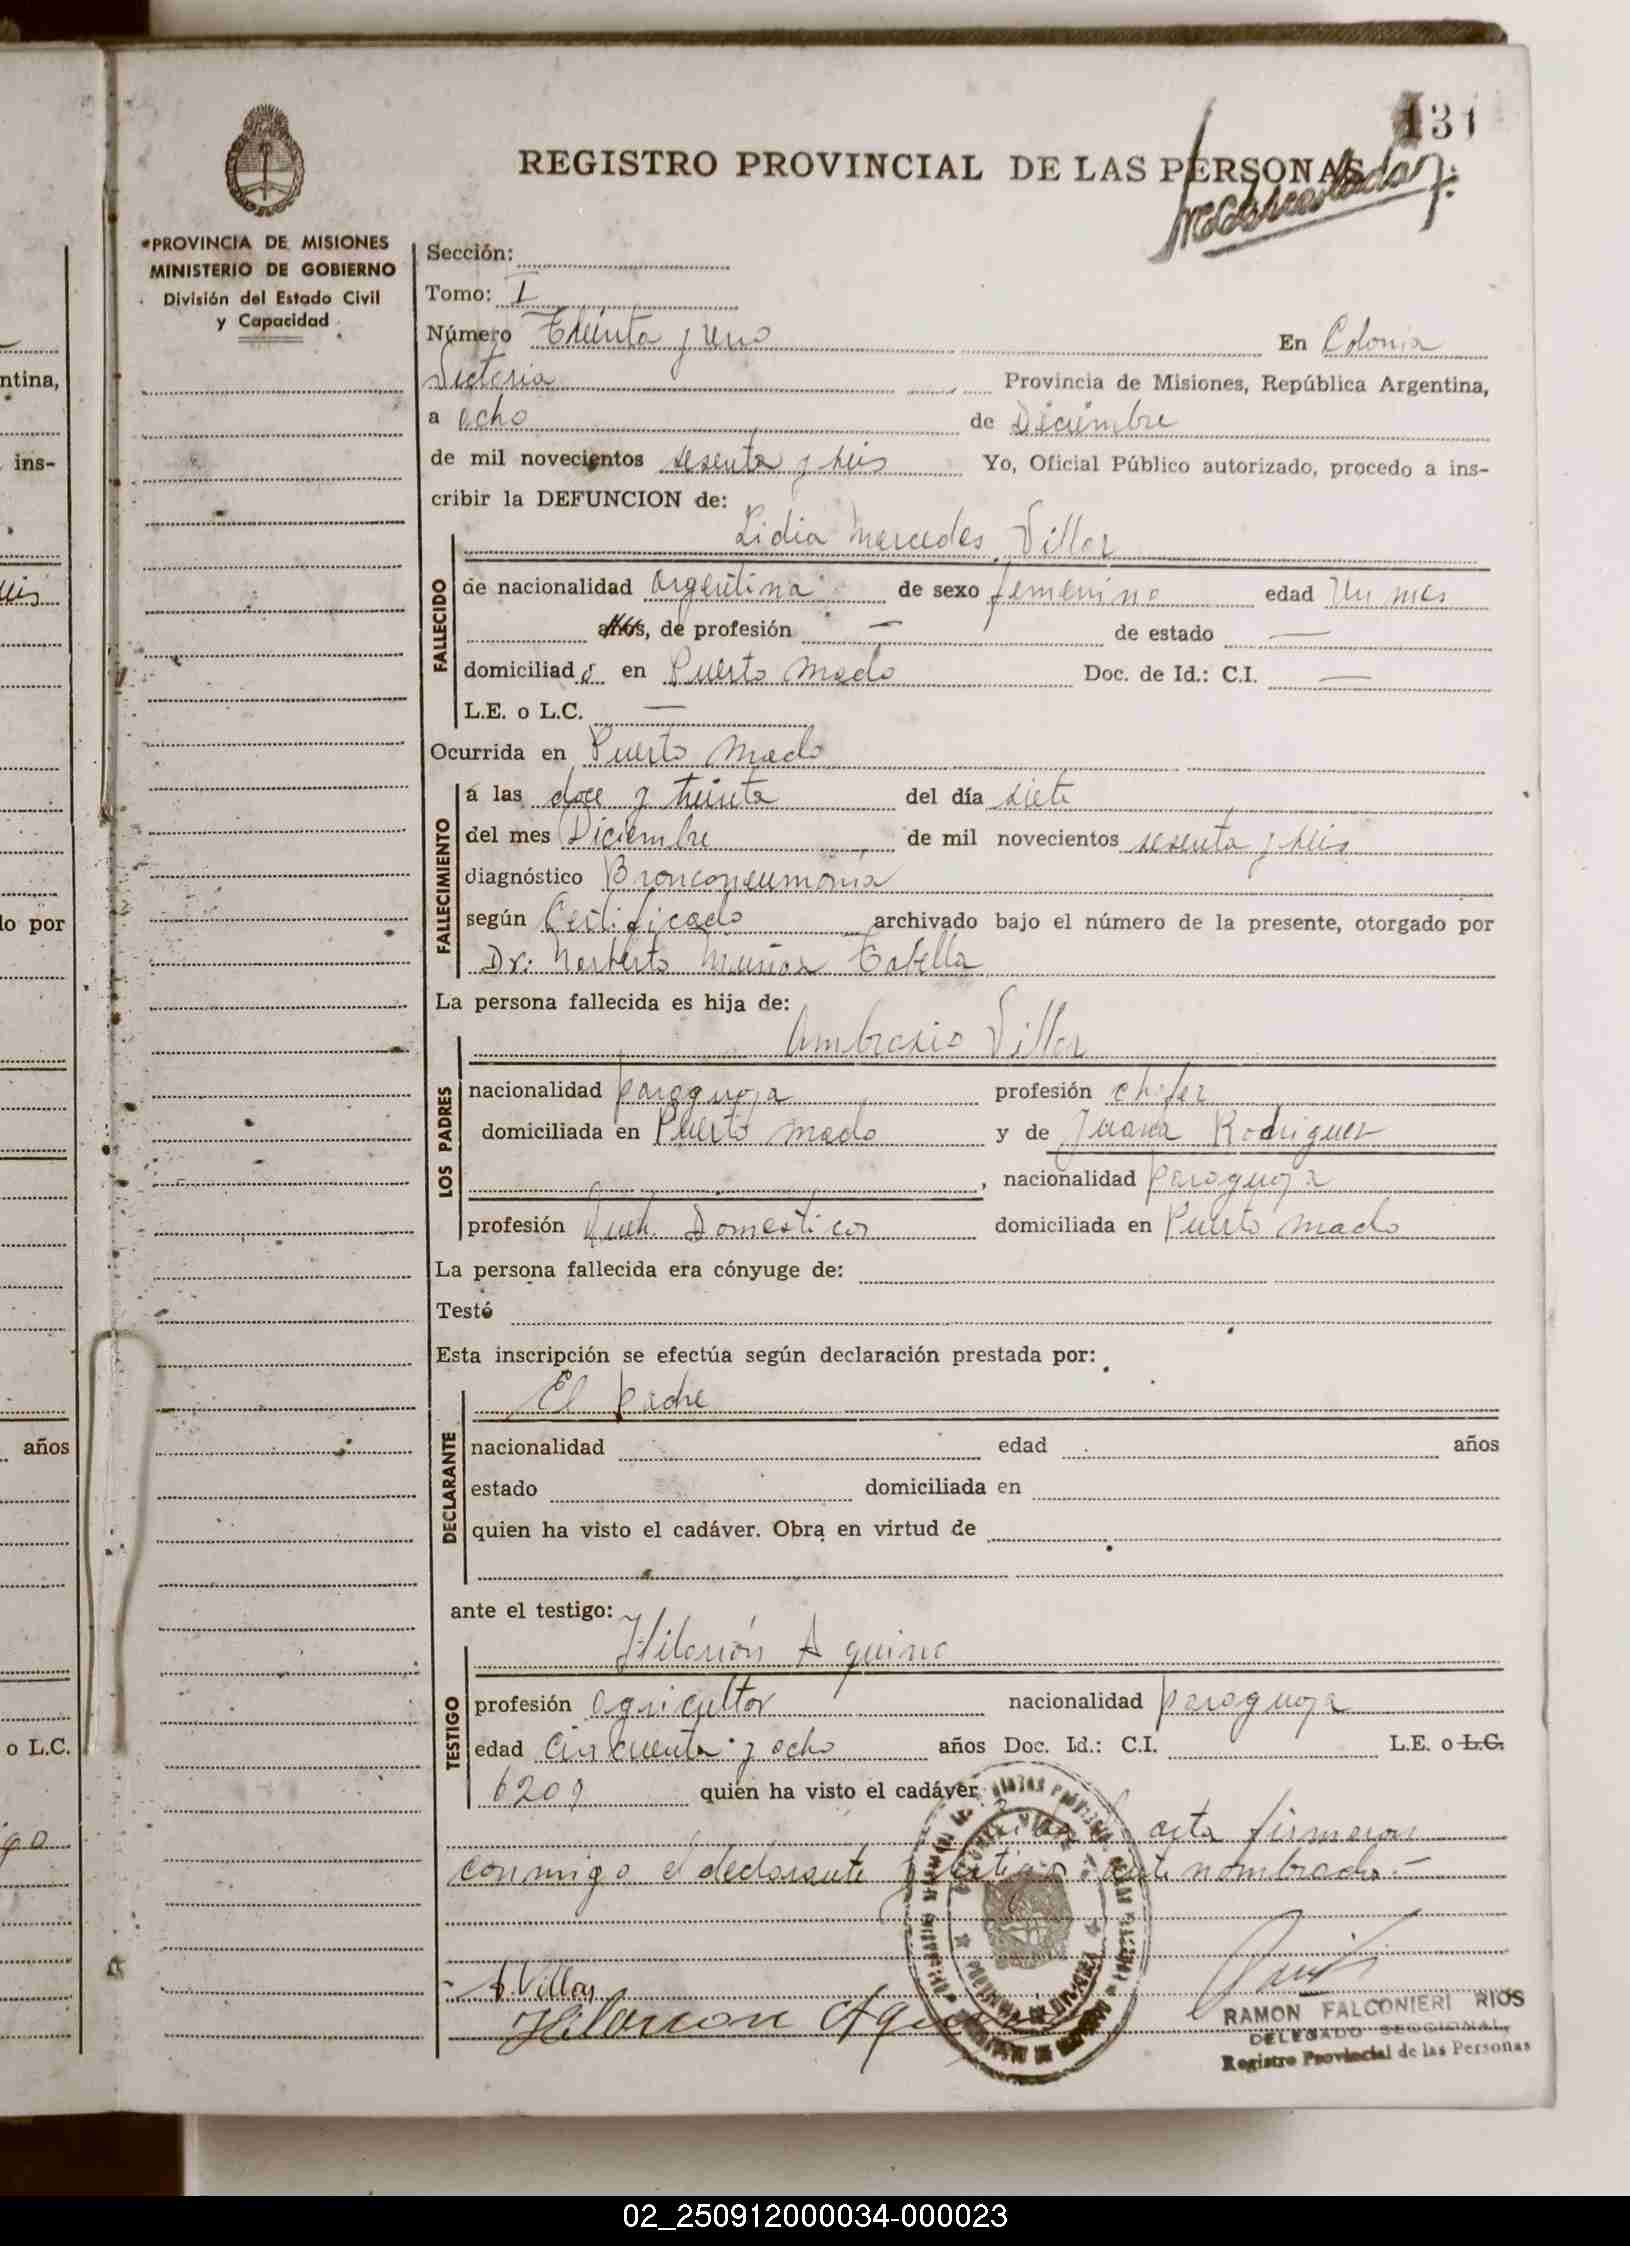 131
REGISTRO PROVINCIAL DE LAS PERSONAS
PROVINCIA DE MISIONES
MINISTERIO DE GOBIERNO
División del Estado Civil
y Capacidad
Sección:
Tomo: I
Número Treinta y uno En Colonia
Victoria Provincia de Misiones, República Argentina,
a ocho de Diciembre
de mil novecientos sesenta y seis Yo, Oficial Público autorizado, procedo a ins-
cribir la DEFUNCION de:
Lidia Mercedes Villar
FALLECIDO
de nacionalidad argentina de sexo femenino edad Un mes
años, de profesión — de estado —
domiciliad a en Puerto Mado Doc. de Id.: C.I. —
L.E. o L.C. —
Ocurrida en Puerto Mado
FALLECIMIENTO
a las doce y treinta del día siete
del mes Diciembre de mil novecientos sesenta y seis
diagnóstico Bronconeumonia
según Certificado archivado bajo el número de la presente, otorgado por
Dr. Norberto Muñoz Cabella
La persona fallecida es hija de:
Ambrosio Villar
LOS PADRES
nacionalidad paraguaya profesión chofer
domiciliada en Puerto Mado y de Juana Rodriguez
, nacionalidad paraguaya
profesión Queh. Domesticos domiciliada en Puerto Mado
La persona fallecida era cónyuge de:
Testó
Esta inscripción se efectúa según declaración prestada por:
El padre
DECLARANTE
nacionalidad edad años
estado domiciliada en
quien ha visto el cadáver. Obra en virtud de
ante el testigo:
Hilarión Aquino
TESTIGO
profesión agricultor nacionalidad paraguaya
edad Cincuenta y ocho años Doc. Id.: C.I. L.E. o L.C.
6209 quien ha visto el cadáver.
acta firmaron
conmigo el declarante y testigo ante nombrado.—
A. Villar
Hilarion Aquino
RAMON FALCONIERI RIOS
DELEGADO SECCIONAL
Registro Provincial de las Personas
ntina,
ins-
do por
años
o L.C.
02_250912000034-000023